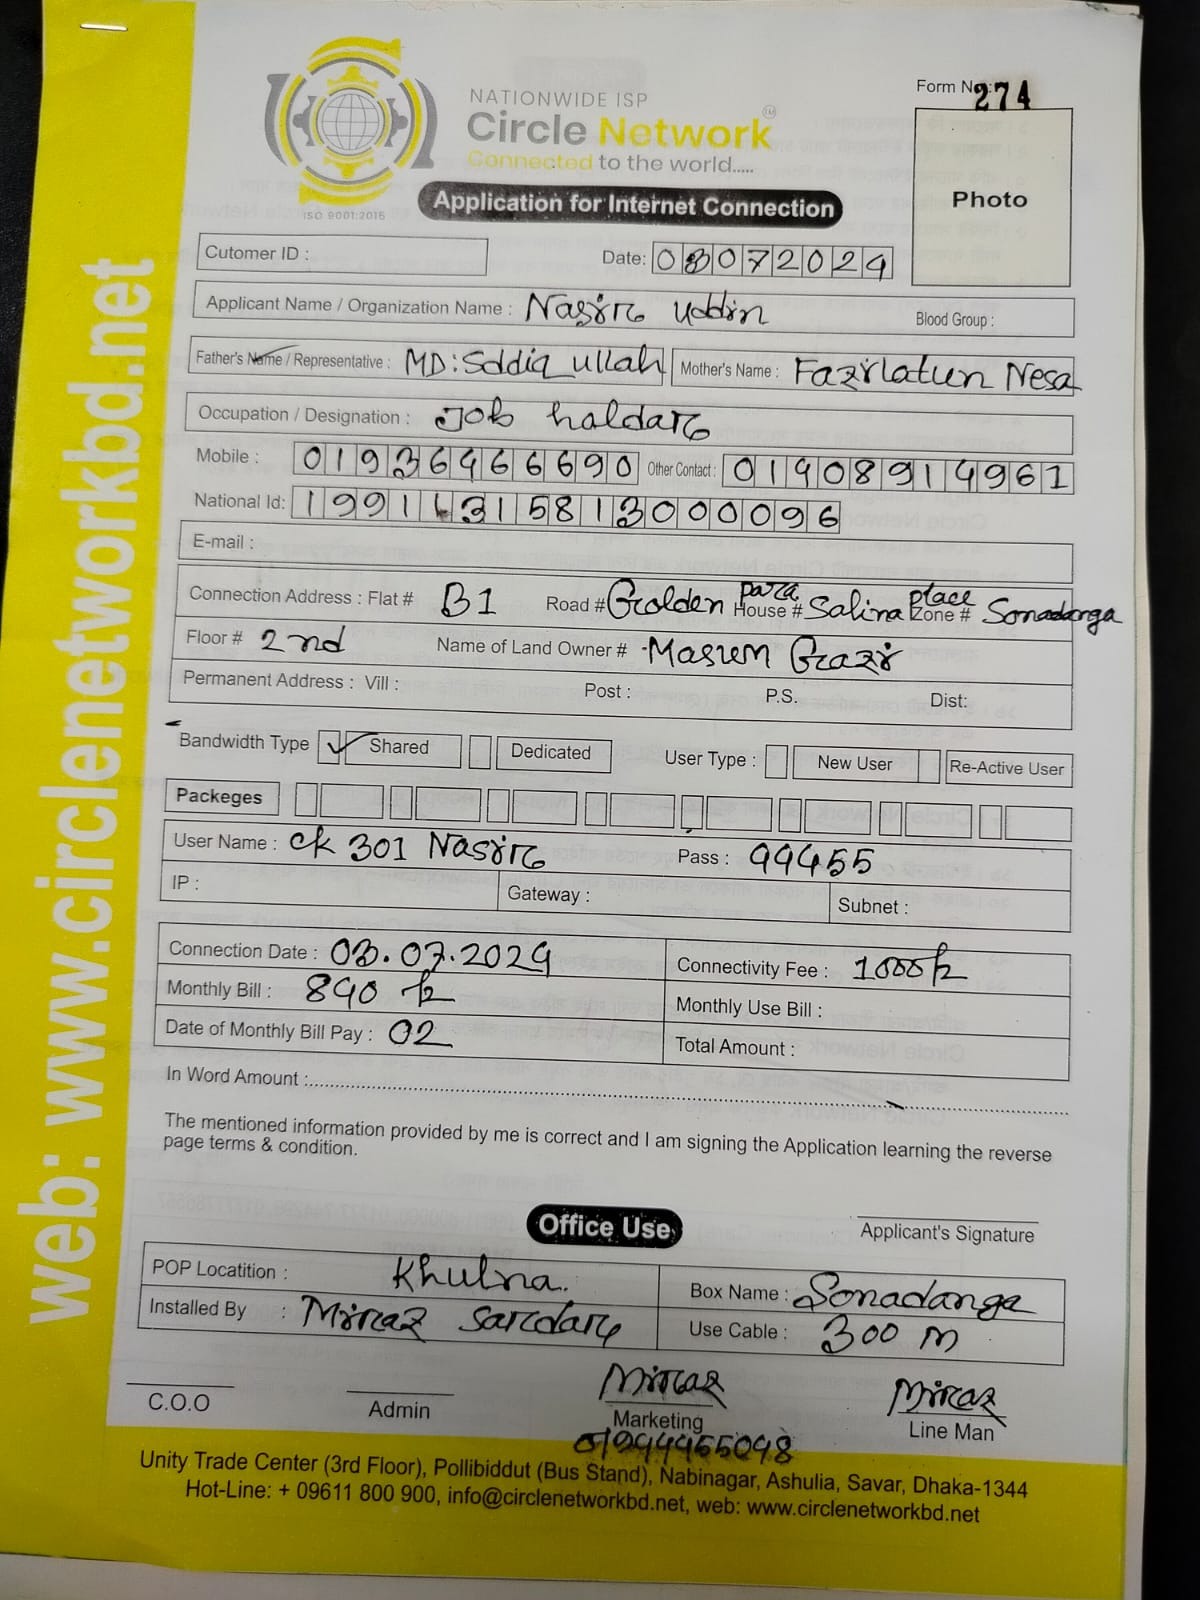 web: www.circlenetworkbd.net
NATIONWIDE ISP
Circle Network TM
Connected to the world.....
ISO 9001:2015
Form No: 274
Photo
Application for Internet Connection
Cutomer ID :
Date: 03072024
Applicant Name / Organization Name : Nasir uddin Blood Group :
Father's Name / Representative : MD: Seddiq ullah Mother's Name : Fazilatun Nesa
Occupation / Designation : Job holdar
Mobile : 01936466690 Other Contact : 01408914961
National Id: 1991 31581 3000096
E-mail :
Connection Address : Flat # B1 Road # Golden para House # Salina place Zone # Sonadanga
Floor # 2nd Name of Land Owner # Masum Gazi
Permanent Address : Vill : Post : P.S. Dist:
Bandwidth Type ✓ Shared Dedicated User Type : New User Re-Active User
Packeges
User Name : ck 301 Nasir Pass : 99455
IP : Gateway : Subnet :
Connection Date : 03.07.2024 Connectivity Fee : 1000
Monthly Bill : 890 Monthly Use Bill :
Date of Monthly Bill Pay : 02 Total Amount :
In Word Amount :
The mentioned information provided by me is correct and I am signing the Application learning the reverse
page terms & condition.
Applicant's Signature
Office Use
POP Locatition : Khulna. Box Name : Sonadanga
Installed By : Miraz Sardar Use Cable : 300 m
Miraz Miraz
C.O.O Admin Marketing Line Man
Unity Trade Center (3rd Floor), Pollibiddut (Bus Stand), Nabinagar, Ashulia, Savar, Dhaka-1344
Hot-Line: + 09611 800 900, info@circlenetworkbd.net, web: www.circlenetworkbd.net